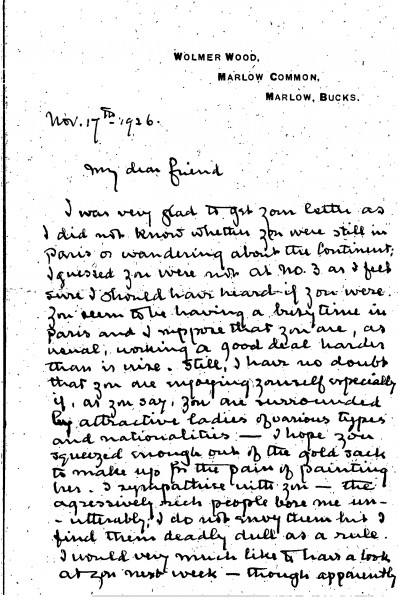 Wolmer Wood,
Marlow Common,
Marlow, Bucks.
Nov. 17th 1926.
My dear friend
I was very glad to get your letter as
I did not know whether you were still in
Paris or wandering about the Continent;
I guessed you were not at No. 3 as I feel
sure I should have heard if you were.
You seem to be having a busy time in
Paris and I suppose that you are, as
usual, working a good deal harder
than is wise. Still, I have no doubt
that you are enjoying yourself especially
if, as you say, you are surrounded
by attractive ladies of various types
and nationalities — I hope you
squeezed enough out of the gold sack
to make up for the pain of painting
her. I sympathise with you — the
agressively rich people bore me un-
-utterably, I do not envy them but I
find them deadly dull as a rule.
I would very much like to have a look
at you next week — though apparently